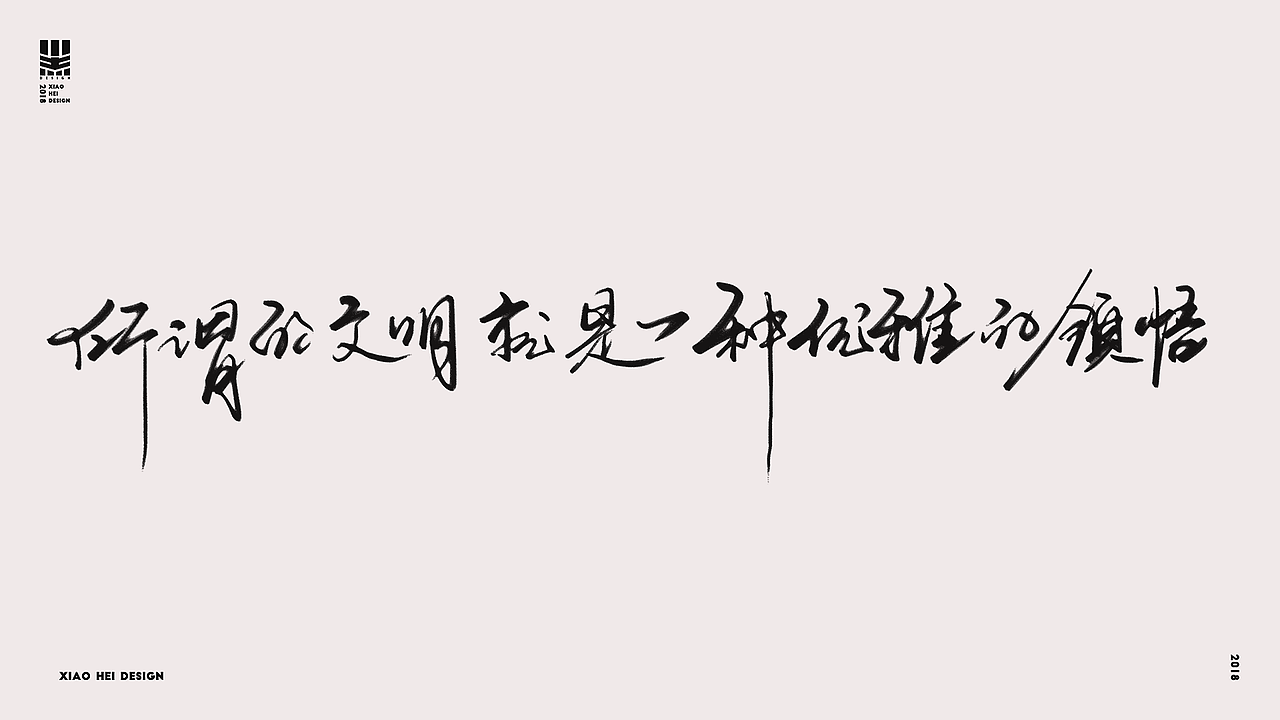 XIAO
HEI
DESIGN
2018
所谓於文明就是一种优雅的領悟
XIAO HEI DESIGN
2018